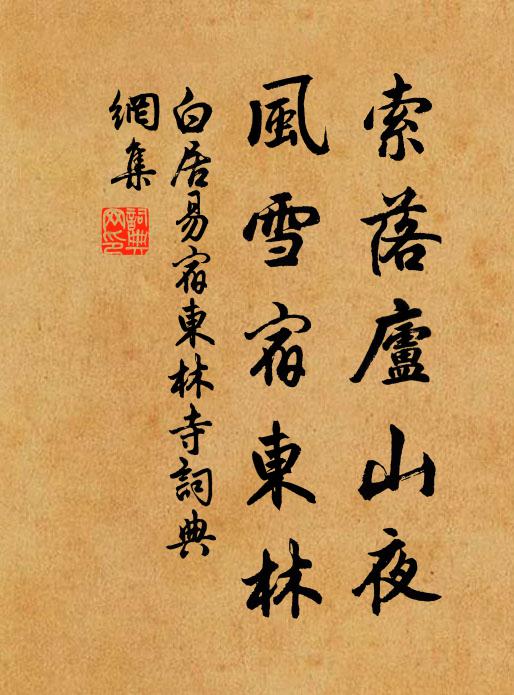 索落廬山夜
風雪宿東林
白居易宿東林寺詞典
網集
詞典
网印